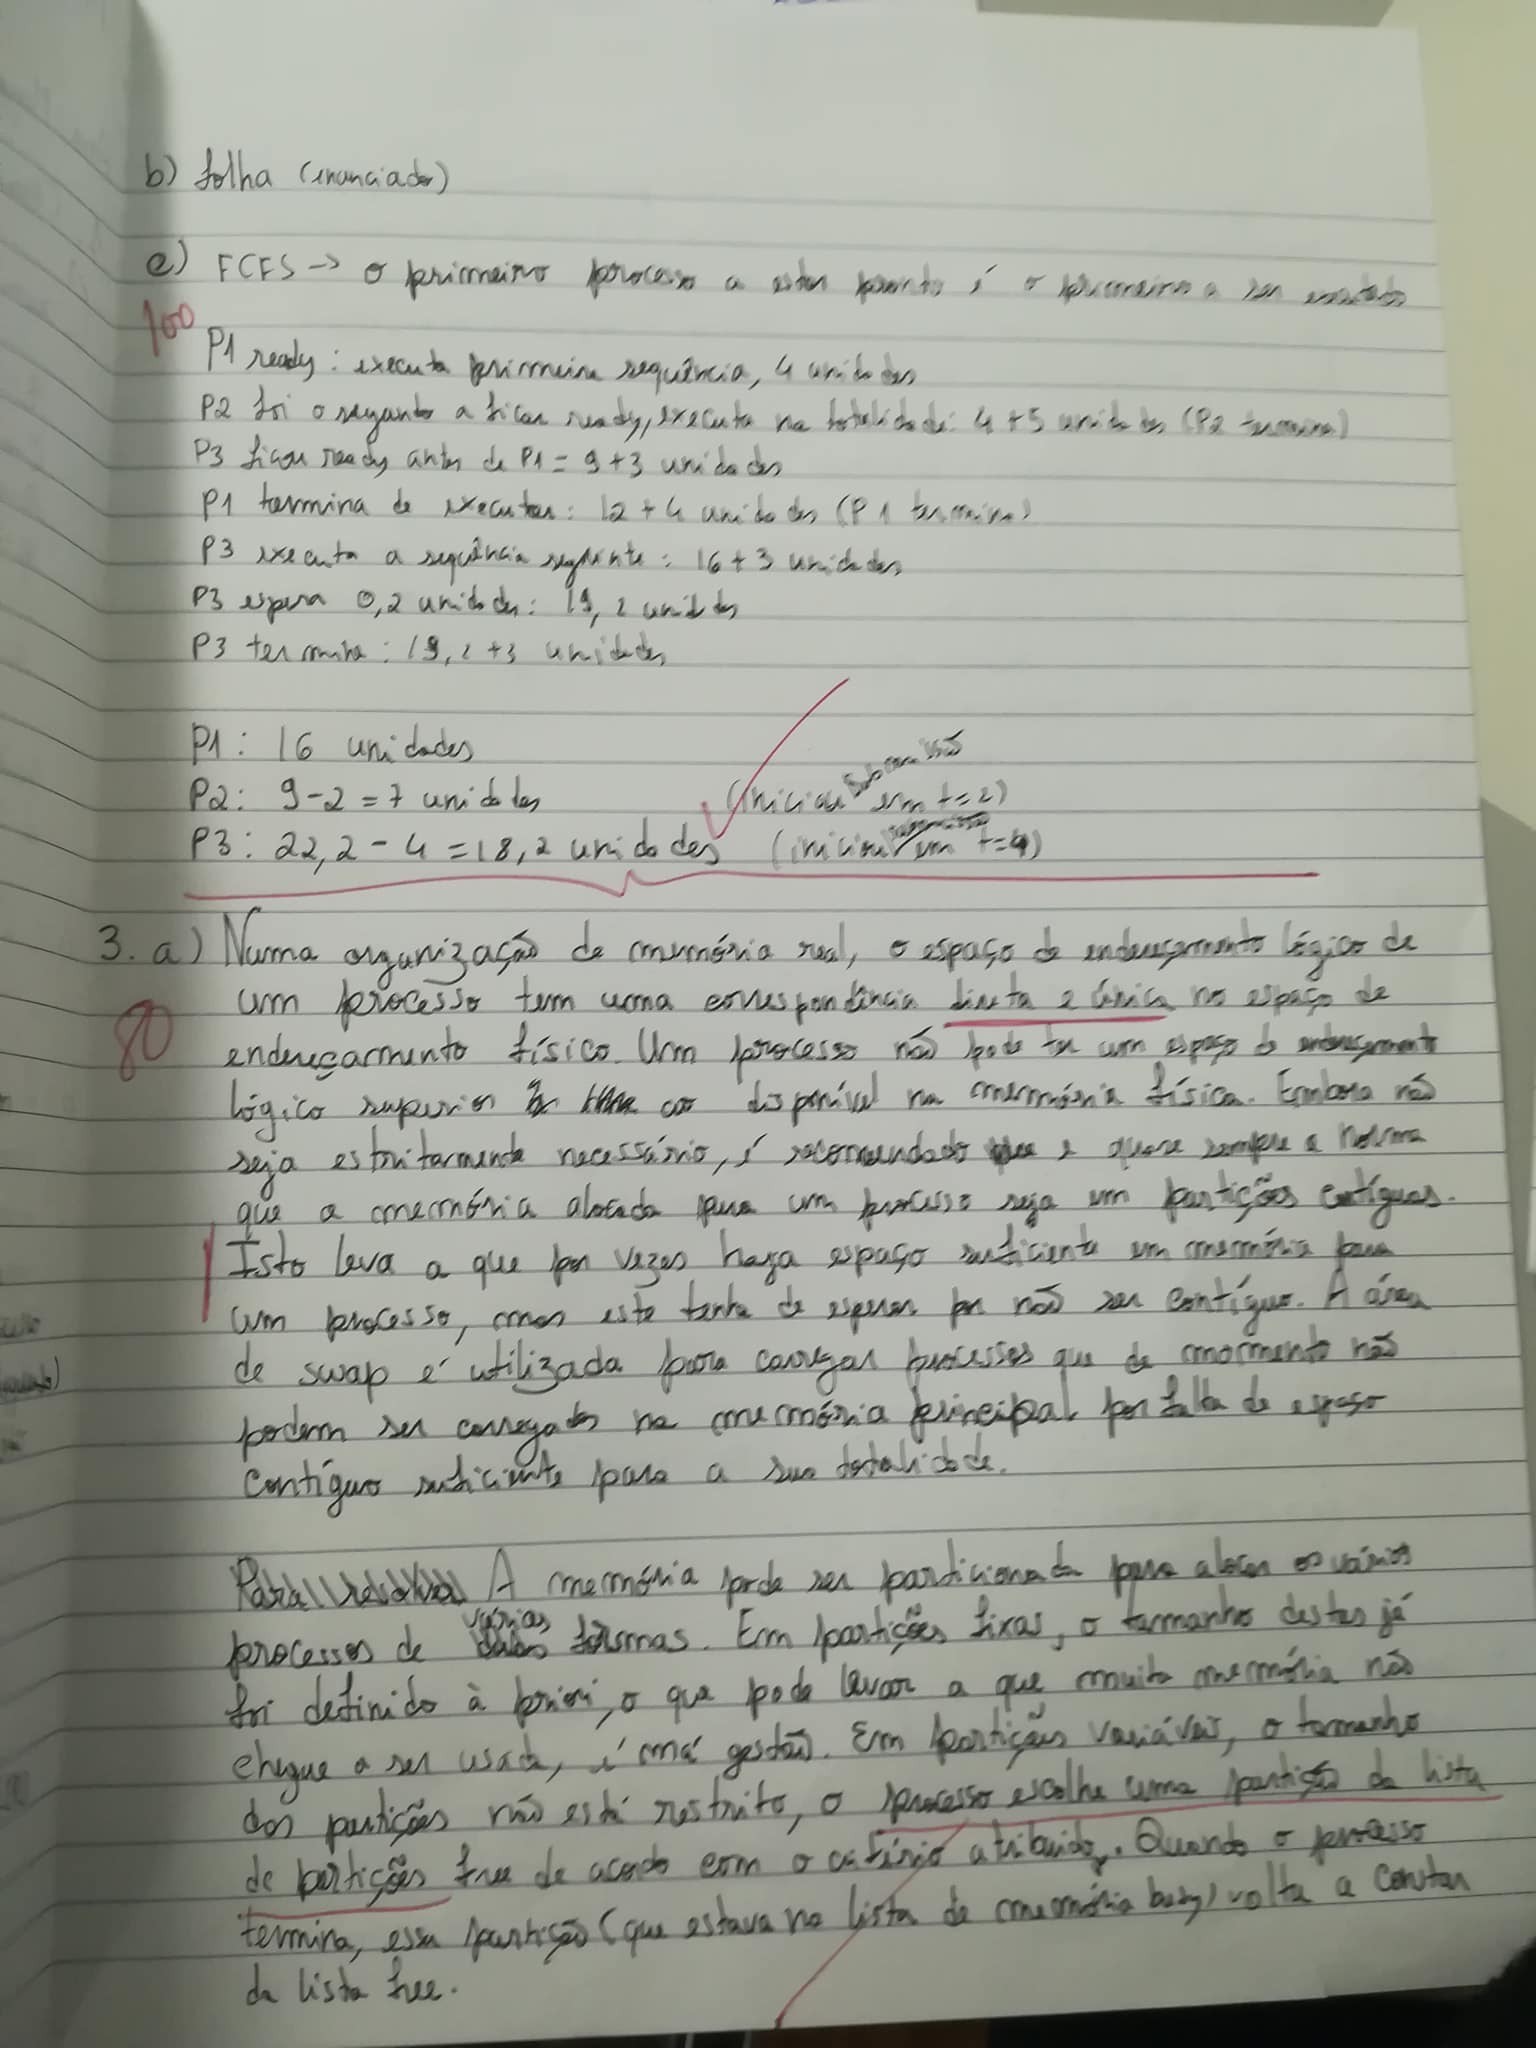 b) folha (enunciado)
c) FCFS -> o primeiro processo a estar pronto é o primeiro a ser executado
100
P1 ready: executa primeira sequência, 4 unidades
P2 foi o segundo a ficar ready, executa na totalidade: 4+5 unidades (P2 termina)
P3 ficou ready antes de P1 = 9+3 unidades
P1 termina de executar: 12+4 unidades (P1 termina)
P3 executa a sequência seguinte: 16+3 unidades
P3 espera 0,2 unidades: 19,2 unidades
P3 termina: 19,2+3 unidades
P1: 16 unidades
P2: 9-2=7 unidades (iniciou em t=2)
P3: 22,2-4=18,2 unidades (iniciou em t=4)
3. a) Numa organização de memória real, o espaço de endereçamento lógico de
80
um processo tem uma correspondência direta e única no espaço de
endereçamento físico. Um processo não pode ter um espaço de endereçamento
lógico superior ao disponível na memória física. Embora não
seja estritamente necessário, é recomendado e quase sempre a norma
que a memória alocada para um processo seja em partições contíguas.
Isto leva a que por vezes haja espaço suficiente em memória para
um processo, mas este tenha de esperar por não ser contíguo. A área
de swap é utilizada para carregar processos que de momento não
podem ser carregados na memória principal por falta de espaço
contíguo suficiente para a sua totalidade.
A memória pode ser particionada para alocar os vários
processos de várias formas. Em partições fixas, o tamanho destas já
foi definido à priori, o que pode levar a que muita memória não
chegue a ser usada, é má gestão. Em partições variáveis, o tamanho
das partições não está restrito, o processo escolhe uma partição da lista
de partições free de acordo com o critério atribuido. Quando o processo
termina, essa partição (que estava na lista de memória busy) volta a constar
da lista free.